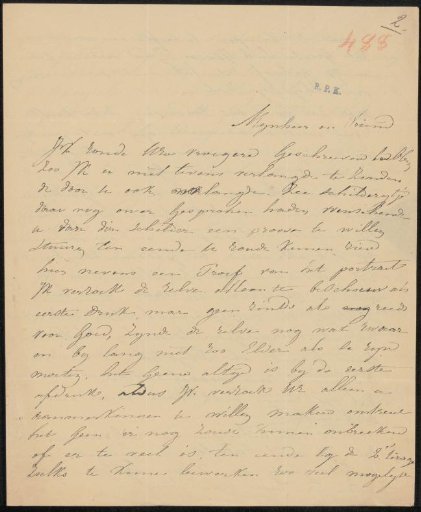 2
488
R.P.K.
Mynheer en Vriend
Ik zoude UEd vroegere geschreven hebben
zoo Ik er niet tevens verlangde te zenden
de door u ook verlangde
daar nog over gesproken hadden
u dan den een proeve te willen
sturen ten einde te zoude kunnen zien
hier nevens een Proef van het portrait
Ik verzoek de zelve alleen te beschouwen als
eerste druk, maar geen zints als reeds
voor goed, zynde de zelve nog wat zwaar
en by lang niet zoo helder als te zyn
moeten, het geene altyd is by de eerste
afdruk, dus Ik verzoek UE alleen u
aanmerkingen te willen maken omtrent
het geen er nog zoude kunnen ontbreeken
of er te veel is, ten einde by de 2e
zulks te kunnen bewerken zoo veel mogelyk